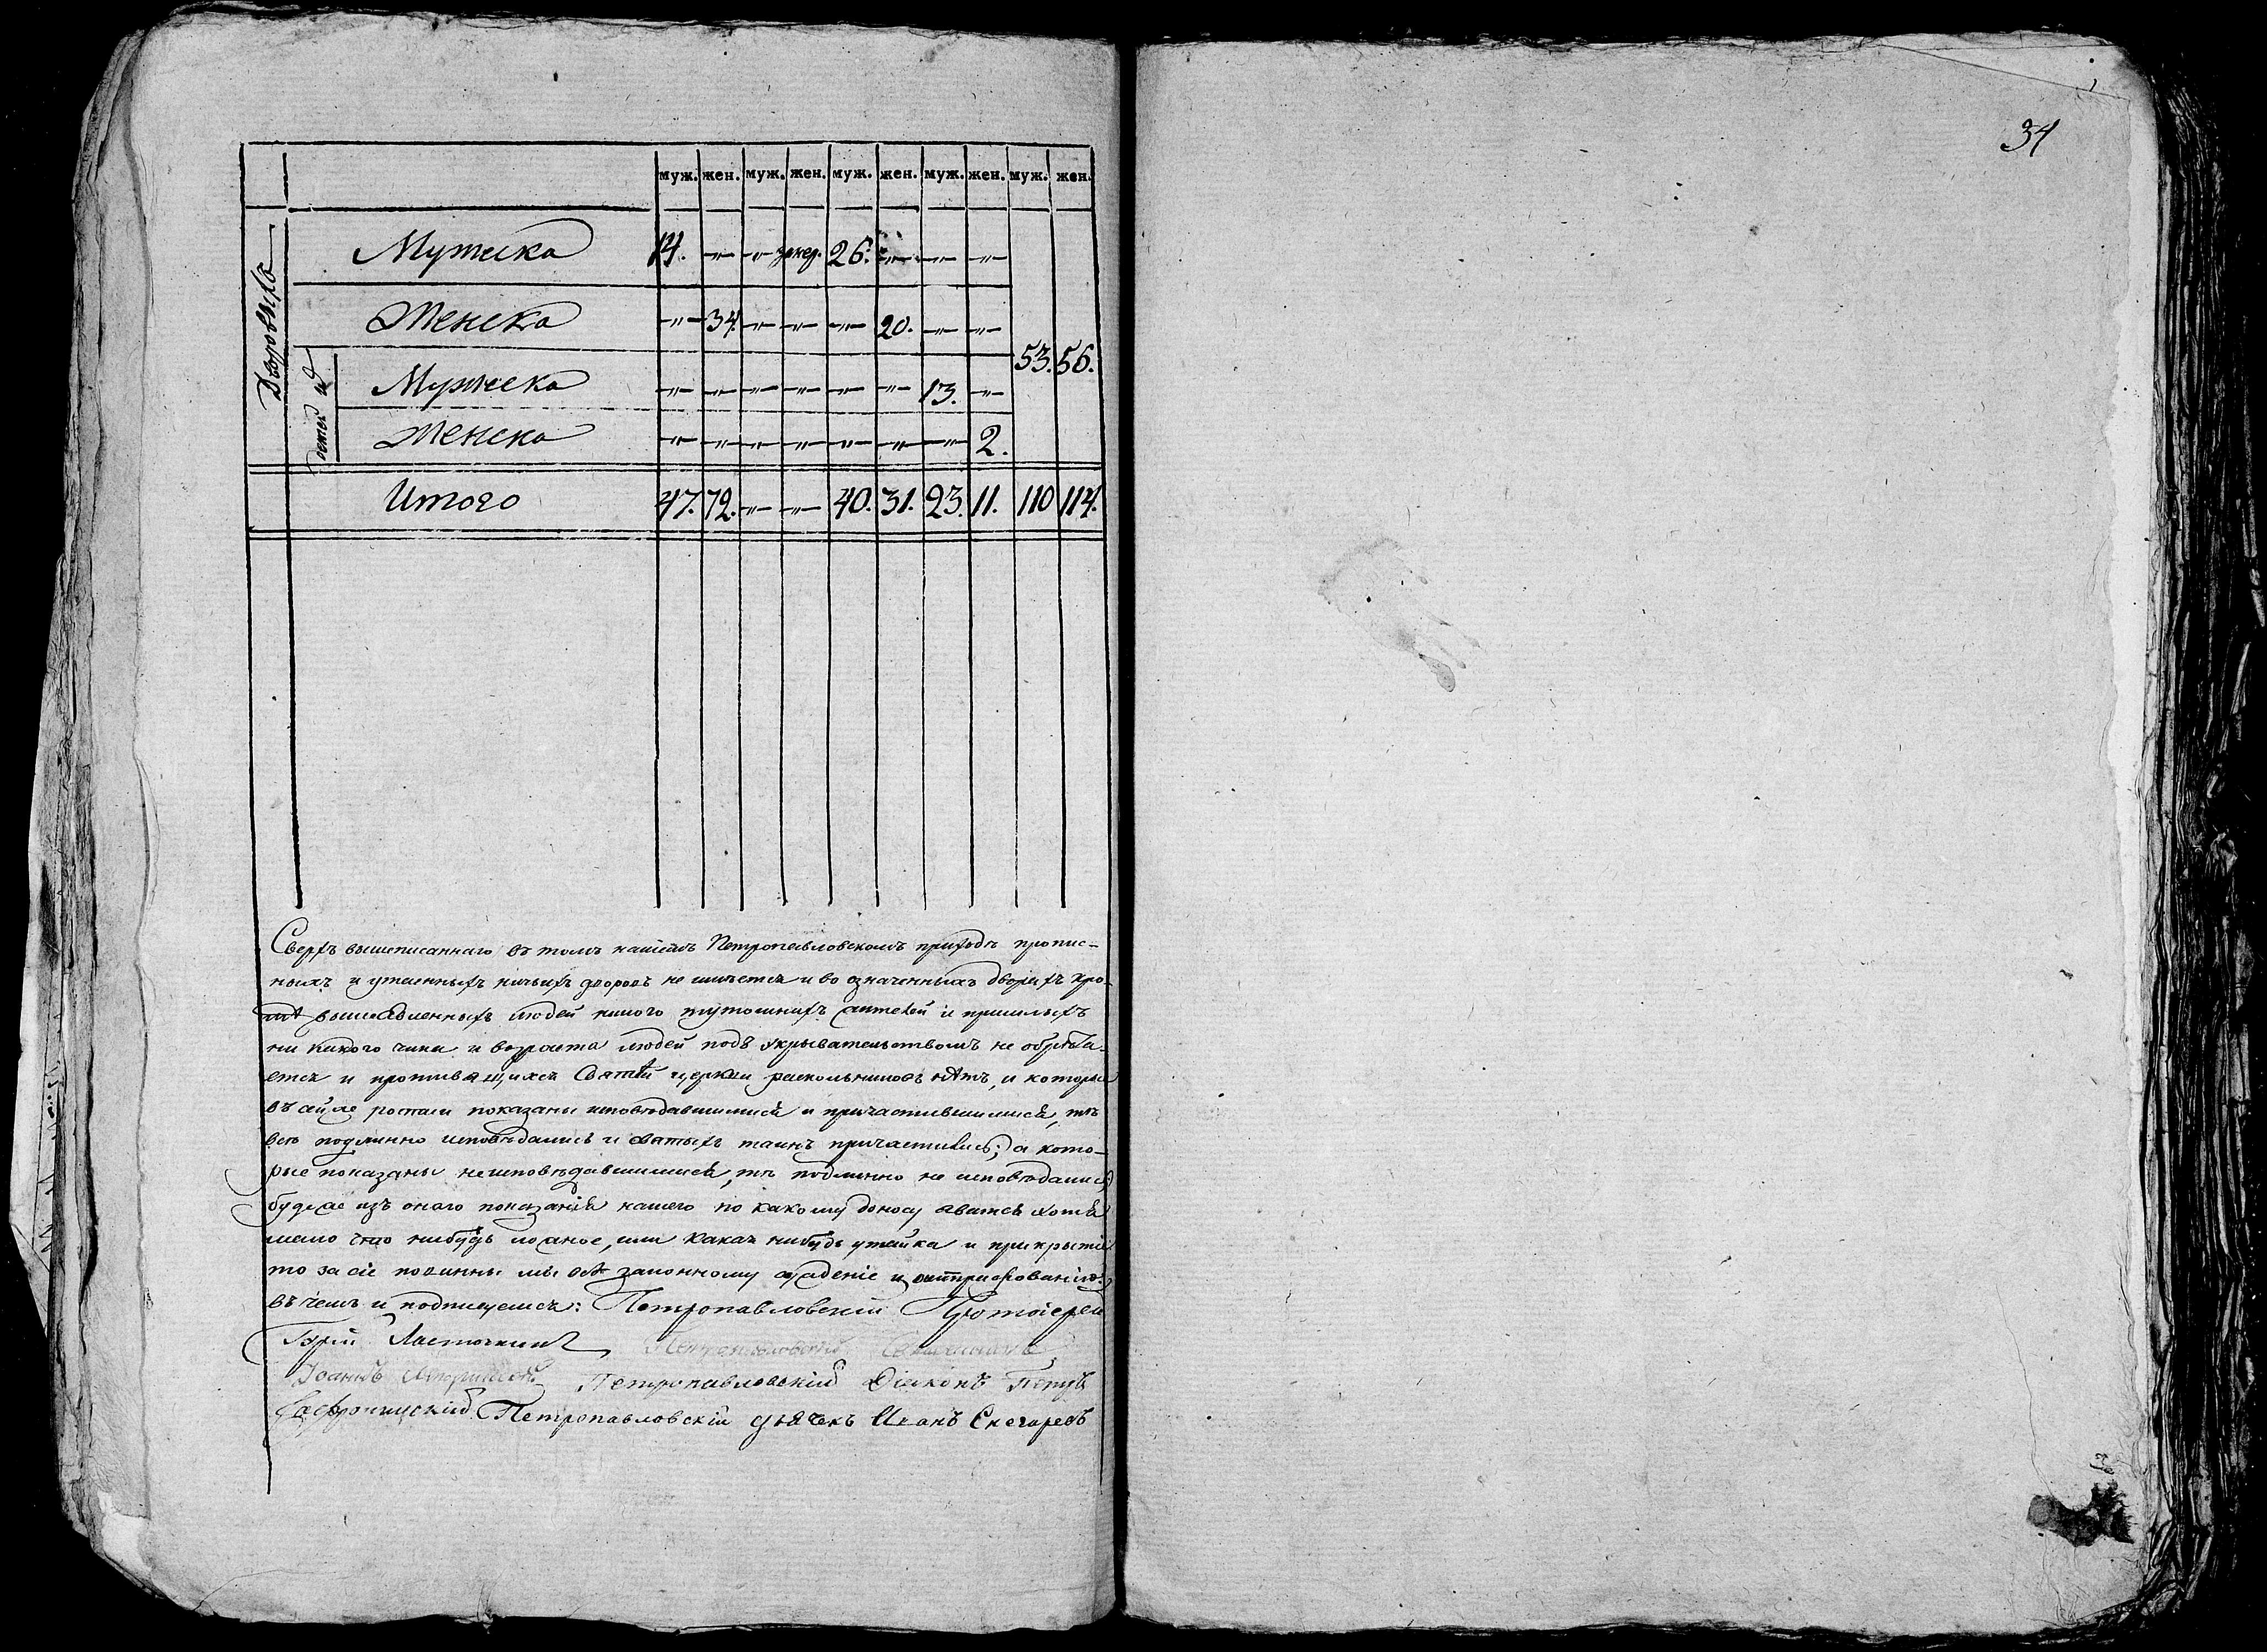 34
муж. жен. муж. жен. муж. жен. муж. жен. муж. жен.
Дворовыхъ
Мужеска 14. —„— —„— 26. —„— —„— —„—
Женска —„— 34. —„— —„— —„— 20. —„— —„—
53. 56.
детей их
Мужеска —„— —„— —„— —„— —„— —„— 13. —„—
Женска —„— —„— —„— —„— —„— —„— —„— 2.
Итого 47. 72. —„— —„— 40. 31. 23. 11. 110 114.
Сверхъ вышеписаннаго въ томъ нашемъ Петропавловскомъ приходѣ пропис-
ныхъ и утаенныхъ ничьихъ дворовъ не имѣется и во означенныхъ дворахъ кро-
мѣ выше людей никого тутошнихъ жителей и пришлыхъ
ни какого чина и возраста людей подъ укрывательствомъ не обрѣта-
ется и противящихся Святѣй церкви раскольниковъ нѣтъ, и которые
въ сей росписи показаны исповѣдавшимися и причастившимися, тѣ
всѣ подлинно исповѣдались и святыхъ таинъ причастились; а кото-
рые показаны неисповѣдавшимися, тѣ подлинно не исповѣдались
буде же изъ онаго показанія нашего по какому доносу явится хотя
мало что нибудь ложное, или какая нибудь утайка и прикрытіе
то за сіе повинны мы всѣ законному
въ чемъ и подписуемся: Петропавловскій Протоіерей
Гурій Ласточкинъ Петропавловскій Священникъ
Іоаннъ Петропавловскій Діаконъ Петръ
Петропавловскій дьячекъ Иванъ Снегаревъ